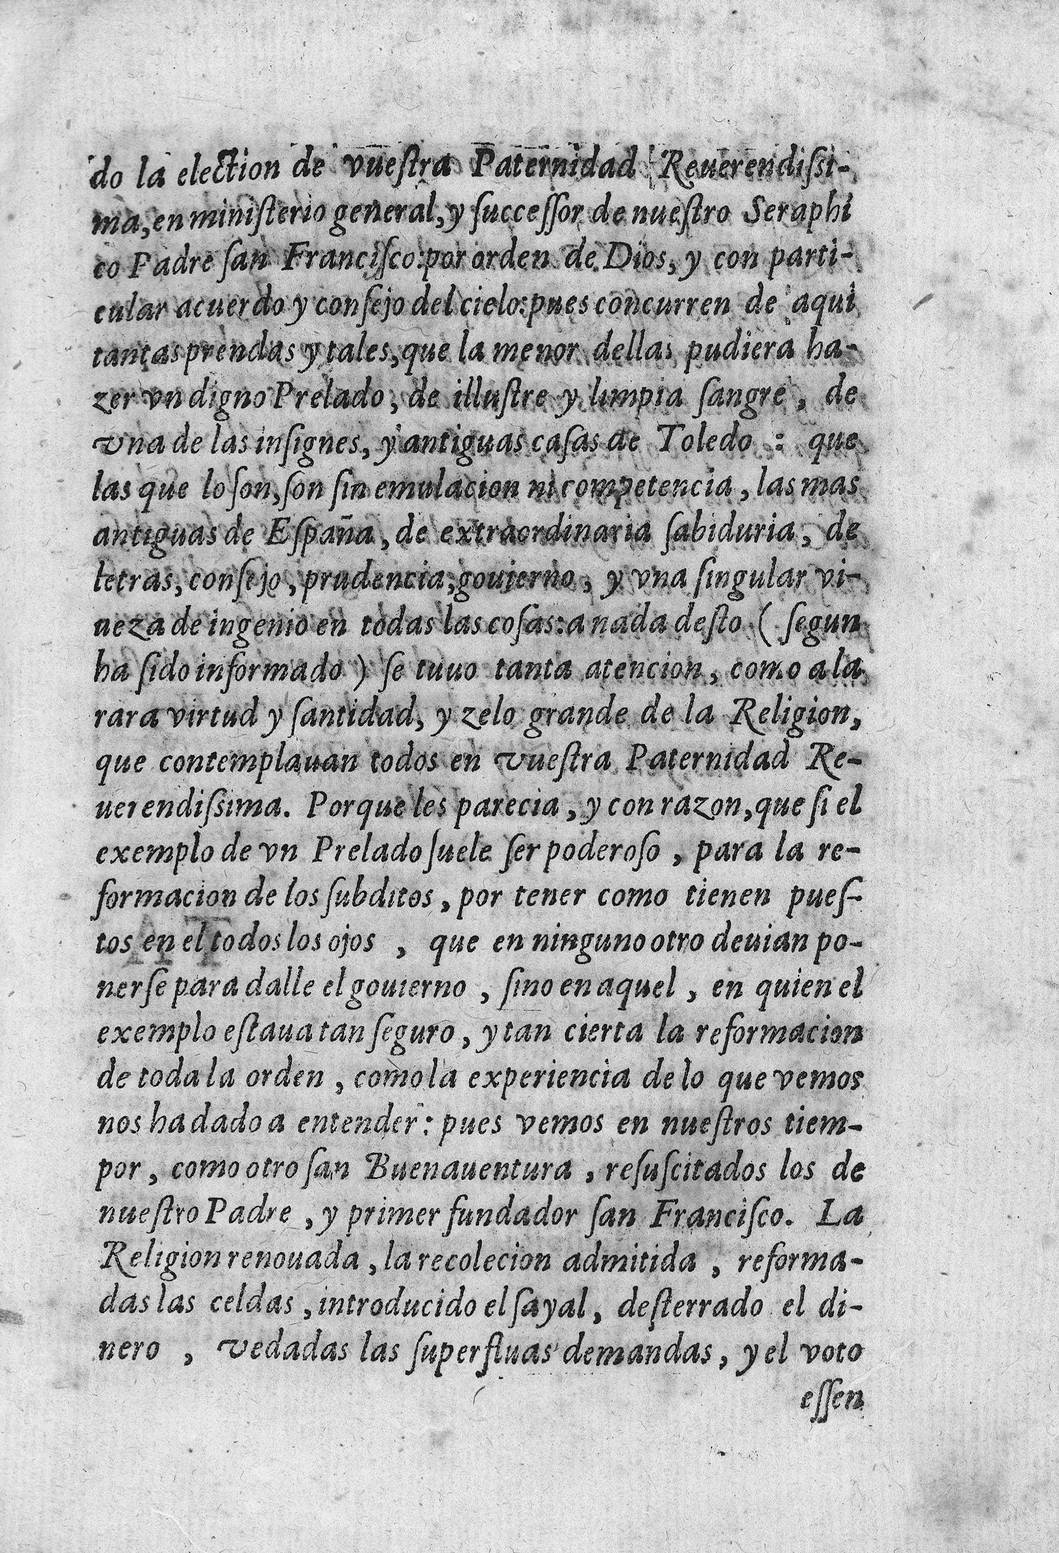 do la election de vuestra Paternidad Reuerendissi-
ma, en ministerio general, y successor de nuestro Seraphi
co Padre san Francisco: por orden de Dios, y con parti-
cular acuerdo y consejo del cielo: pues concurren de aqui
tantas prendas y tales, que la menor dellas pudiera ha-
zer vn digno Prelado; de illustre y limpia sangre, de
vna de las insignes, y antiguas casas de Toledo : que
las que lo son, son sin emulacion ni competencia, las mas
antiguas de España, de extraordinaria sabiduria, de
letras, consejo, prudencia, gouierno, y vna singular vi-
ueza de ingenio en todas las cosas: a nada desto ( segun
ha sido informado ) se tuuo tanta atencion, como a la
rara virtud y santidad, y zelo grande de la Religion,
que contemplauan todos en vuestra Paternidad Re-
uerendissima. Porque les parecia, y con razon, que si el
exemplo de vn Prelado suele ser poderoso, para la re-
formacion de los subditos, por tener como tienen pues-
tos en el todos los ojos , que en ninguno otro deuian po-
nerse para dalle el gouierno , sino en aquel, en quien el
exemplo estaua tan seguro, y tan cierta la reformacion
de toda la orden, como la experiencia de lo que vemos
nos ha dado a entender: pues vemos en nuestros tiem-
por, como otro san Buenauentura, resuscitados los de
nuestro Padre, y primer fundador san Francisco. La
Religion renouada, la recolecion admitida , reforma-
das las celdas, introducido el sayal, desterrado el di-
nero , vedadas las superfluas demandas, y el voto
essen